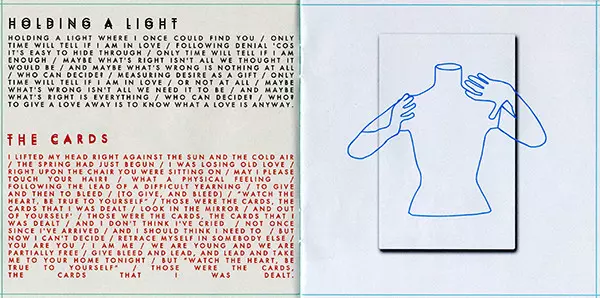 HOLDING A LIGHT
HOLDING A LIGHT WHERE I ONCE COULD FIND YOU / ONLY
TIME WILL TELL IF I AM IN LOVE / FOLLOWING DENIAL 'COS
IT'S EASY TO HIDE THROUGH / ONLY TIME WILL TELL IF I AM
ENOUGH / MAYBE WHAT'S RIGHT ISN'T ALL WE THOUGHT IT
WOULD BE / AND MAYBE WHAT'S WRONG IS NOTHING AT ALL
/ WHO CAN DECIDE? / MEASURING DESIRE AS A GIFT / ONLY
TIME WILL TELL IF I AM IN LOVE / OR NOT AT ALL / MAYBE
WHAT'S WRONG ISN'T ALL WE NEED IT TO BE / AND MAYBE
WHAT'S RIGHT IS EVERYTHING / WHO CAN DECIDE? / WHO?
TO GIVE A LOVE AWAY IS TO KNOW WHAT A LOVE IS ANYWAY.
THE CARDS
I LIFTED MY HEAD RIGHT AGAINST THE SUN AND THE COLD AIR
/ THE SPRING HAD JUST BEGUN / I WAS LOSING OLD LOVE /
RIGHT UPON THE CHAIR YOU WERE SITTING ON / MAY I PLEASE
TOUCH YOUR HAIR? / WHAT A PHYSICAL FEELING /
FOLLOWING THE LEAD OF A DIFFICULT YEARNING / TO GIVE
AND THEN TO BLEED / (TO GIVE, AND BLEED) / "WATCH THE
HEART, BE TRUE TO YOURSELF" / THOSE WERE THE CARDS, THE
CARDS THAT I WAS DEALT / LOOK IN THE MIRROR / AND OUT
OF YOURSELF' / THOSE WERE THE CARDS, THE CARDS THAT I
WAS DEALT / AND I DON'T THINK I'VE CRIED / NOT ONCE
SINCE I'VE ARRIVED / AND I SHOULD THINK I NEED TO / BUT
NOW I CAN'T DECIDE / RETRACE MYSELF IN SOMEBODY ELSE /
YOU ARE YOU / I AM ME / WE ARE YOUNG AND WE ARE
PARTIALLY FREE / GIVE BLEED AND LEAD, AND LEAD AND TAKE
ME TO YOUR HOME TONIGHT / BUT "WATCH THE HEART, BE
TRUE TO YOURSELF" / THOSE WERE THE CARDS,
THE CARDS THAT I WAS DEALT.